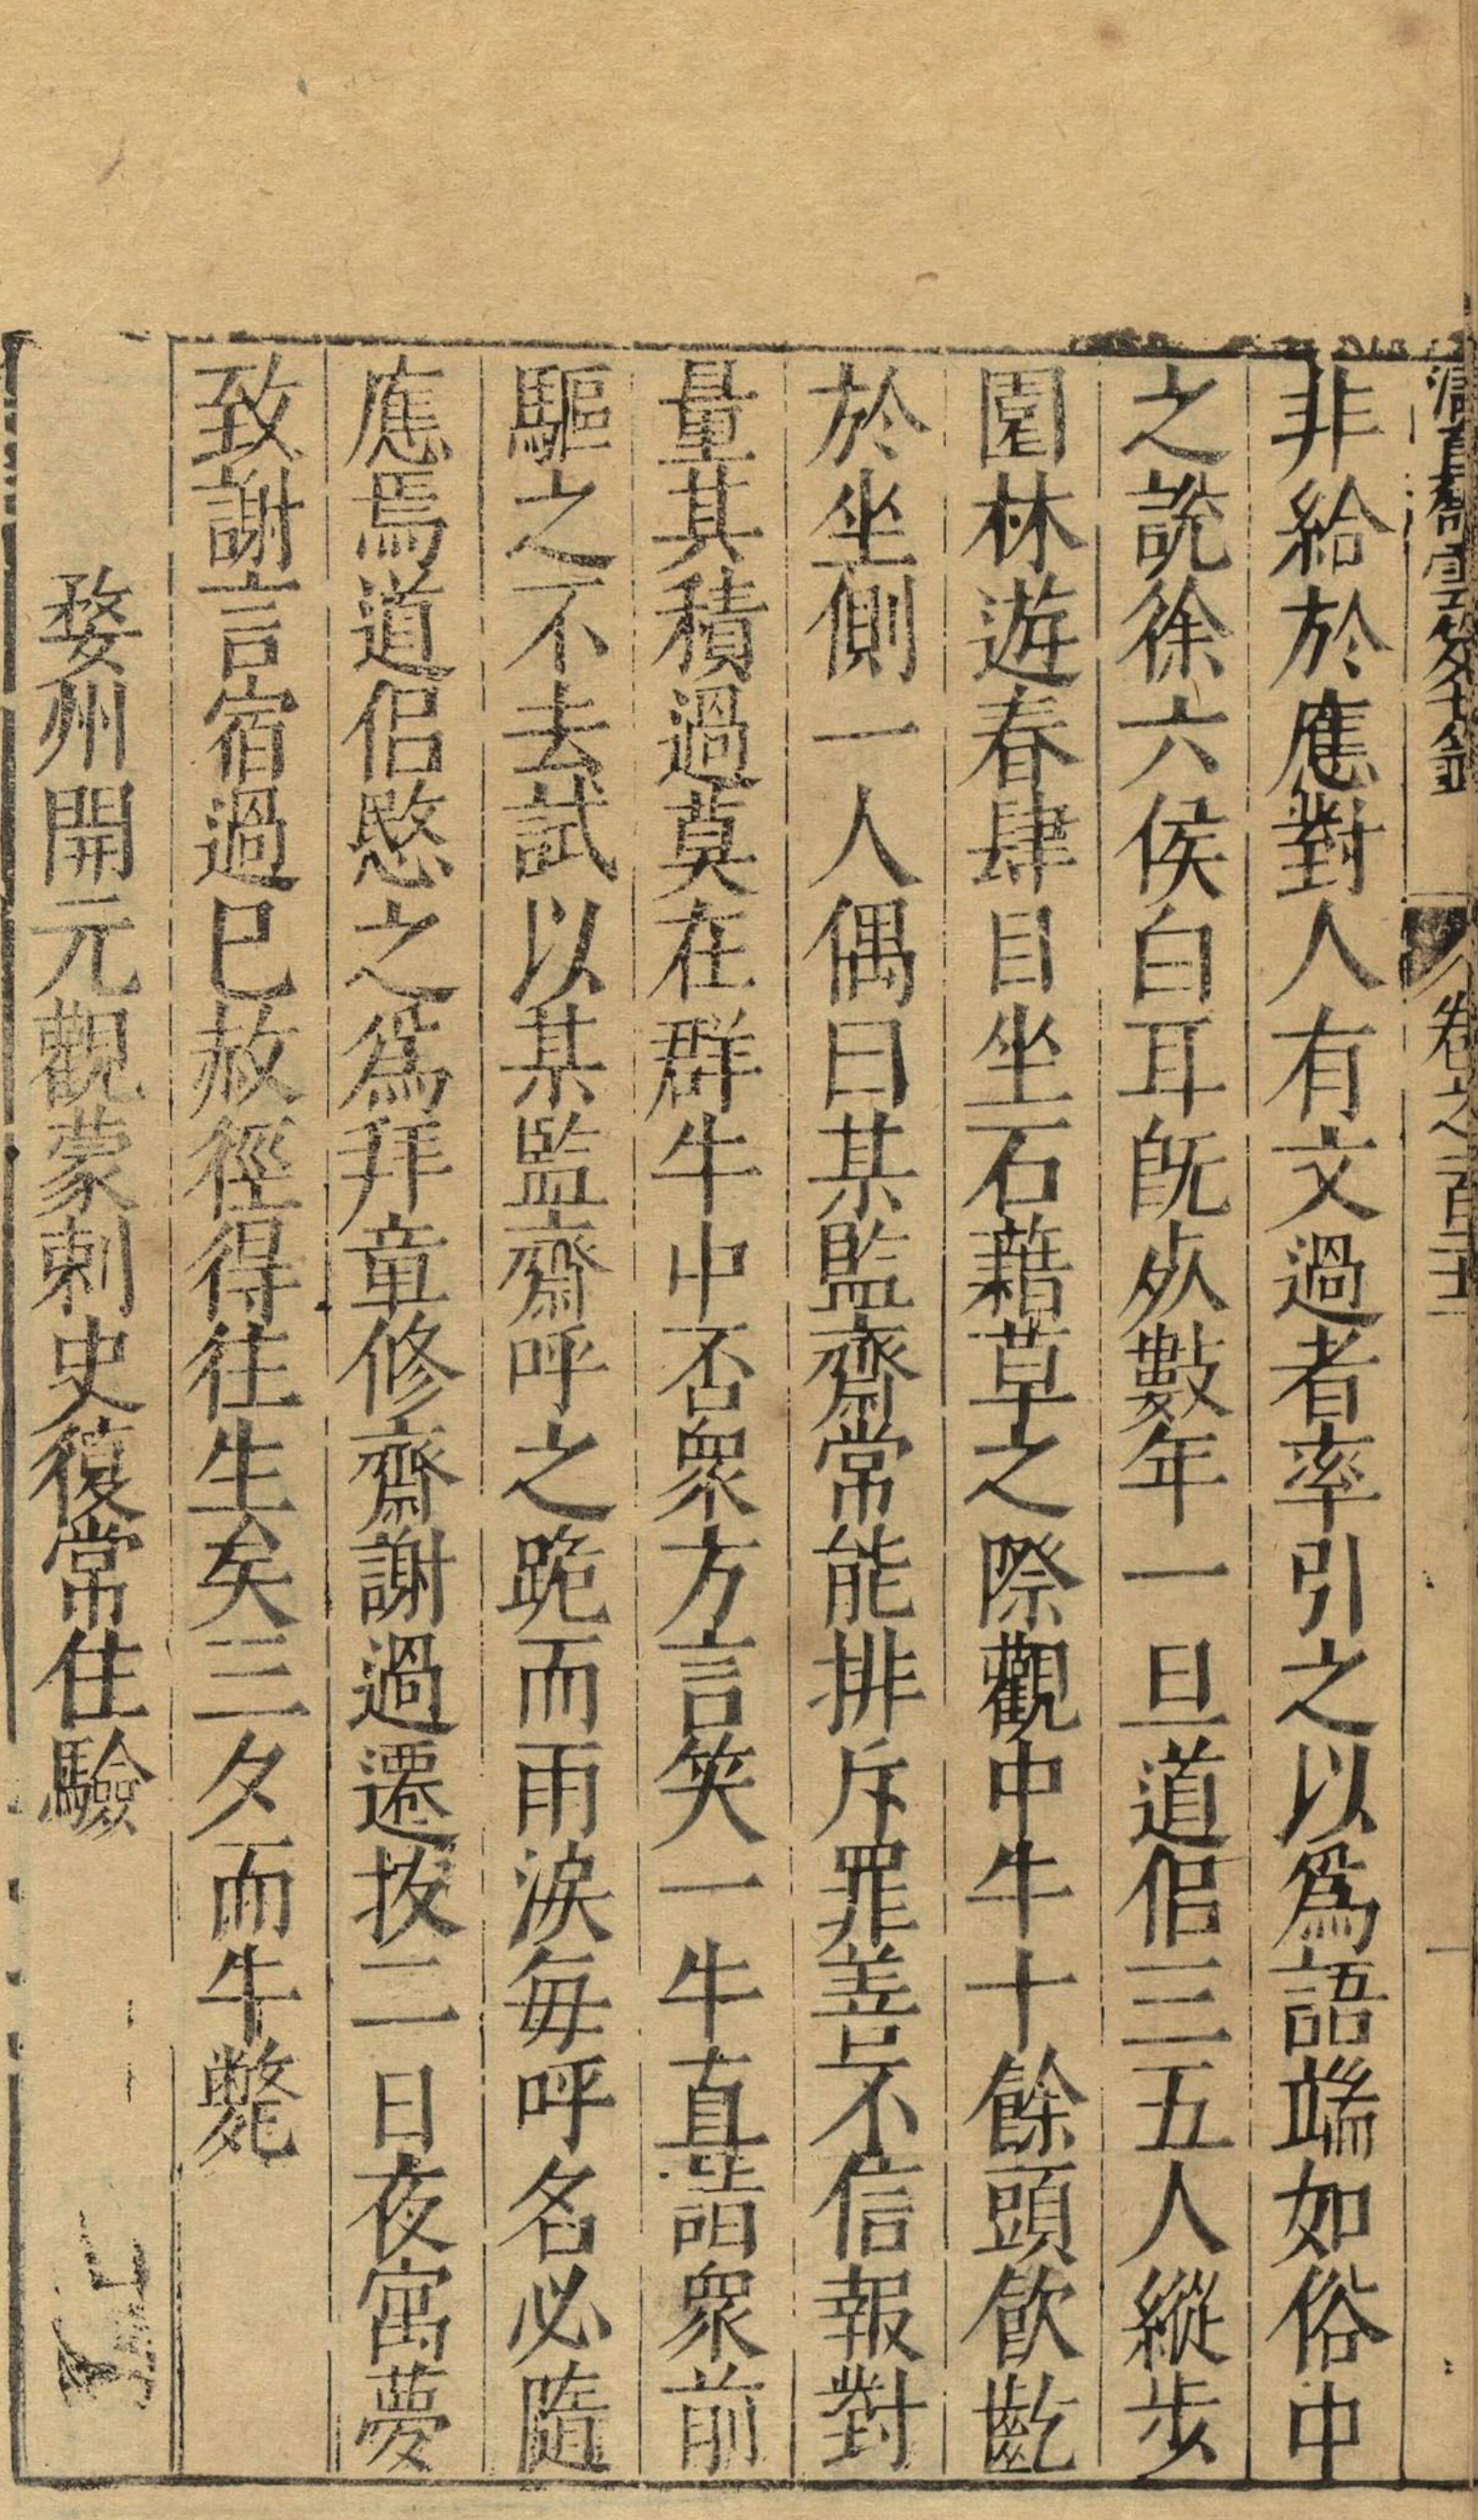 卷之一百二十一
非給於應對人有文過者率引之以爲語端如俗中
之說徐六侯白耳旣歿數年一旦道侣三五人縱步
園林遊春肆目坐石藉草之際觀中牛十餘頭飲齕
於坐側一人偶曰某監齋常能排斥罪善不信報對
量其積過莫在群牛中否衆方言笑一牛直詣衆前
驅之不去試以某監齋呼之跪而雨淚每呼名必隨
應焉道侣愍之爲拜章修齋謝過遷拔二日夜寓夢
致謝言宿過已赦徑得往生矣三夕而牛斃
婺州開元觀蒙刺史復常住驗